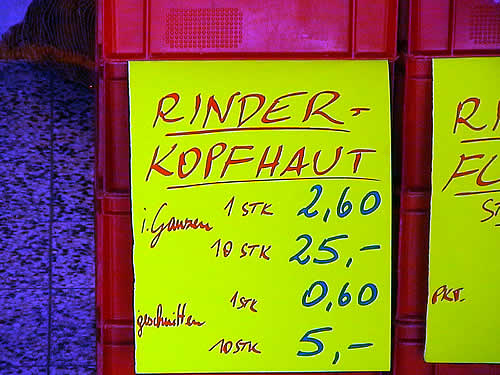 RINDER-
KOPFHAUT
i. Ganzen 1 STK 2,60
10 STK 25,-
geschnitten 1 STK 0,60
10 STK 5,-
RI
FU
ST
PKT.